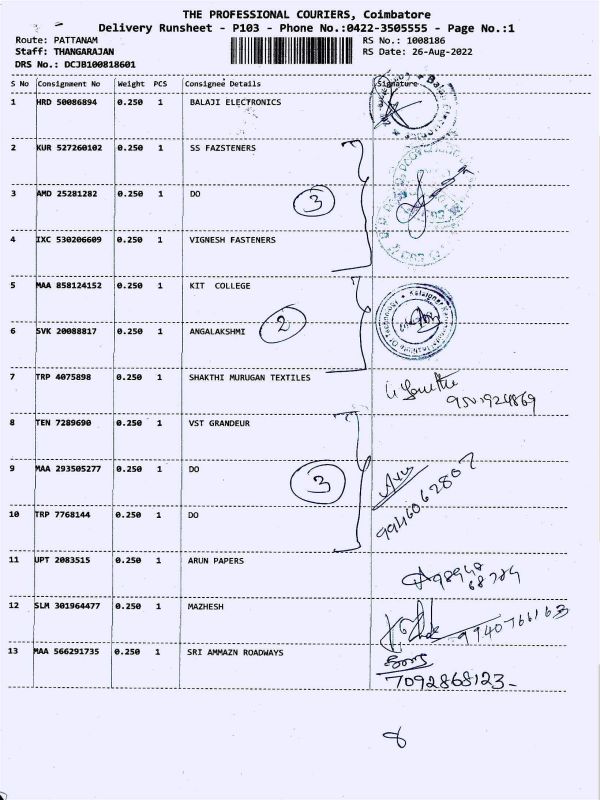 THE PROFESSIONAL COURIERS, Coimbatore
Delivery Runsheet - P103 - Phone No.:0422-3505555 - Page No.:1
Route: PATTANAM RS No.: 1008186
Staff: THANGARAJAN RS Date: 26-Aug-2022
DRS No.: DCJB100818601
S No Consignment No Weight PCS Consignee Details Signature
1 HRD 50086894 0.250 1 BALAJI ELECTRONICS
2 KUR 527260102 0.250 1 SS FAZSTENERS
3 AMD 25281282 0.250 1 DO 3
4 IXC 530206609 0.250 1 VIGNESH FASTENERS
5 MAA 858124152 0.250 1 KIT COLLEGE
6 SVK 20088817 0.250 1 ANGALAKSHMI 2
7 TRP 4075898 0.250 1 SHAKTHI MURUGAN TEXTILES
8 TEN 7289690 0.250 1 VST GRANDEUR
9 MAA 293505277 0.250 1 DO 3
9946062807
10 TRP 7768144 0.250 1 DO
11 UPT 2083515 0.250 1 ARUN PAPERS
12 SLM 301964477 0.250 1 MAZHESH 9940766163
13 MAA 566291735 0.250 1 SRI AMMAZN ROADWAYS
7092868123-
8